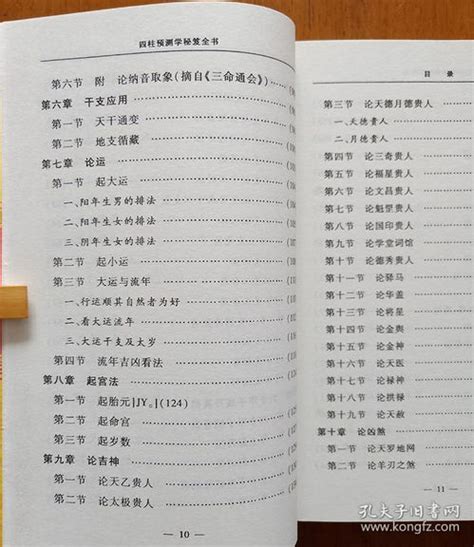 四柱预测学秘笈全书
第六节 附 论纳音取象(摘自《三命通会》)
第六章 干支应用
第一节 天干通变
第二节 地支循藏
第七章 论运
第一节 起大运
一、阳年生男的排法
二、阳年生女的排法
三、阴年生女的排法
第二节 起小运
第三节 大运与流年
一、行运顺其自然者为好
二、看大运流年
三、大运干支及太岁
第四节 流年吉凶看法
第八章 起宫法
第一节 起胎元|JY。|(124)
第二节 起命宫
第三节 起岁数
第九章 论吉神
第一节 论天乙贵人
第二节 论太极贵人
— 10 —
目 录
第三节 论天德月德贵人
一、天德贵人
二、月德贵人
第四节 论三奇贵人
第五节 论福星贵人
第六节 论文昌贵人
第七节 论魁罡贵人
第八节 论国印贵人
第九节 论学堂词馆
第十节 论德秀贵人
第十一节 论驿马
第十二节 论华盖
第十三节 论将星
第十四节 论金舆
第十五节 论金神
第十六节 论天医
第十七节 论禄神
第十八节 论拱禄
第十九节 论天赦
第十章 论凶煞
第一节 论天罗地网
第二节 论羊刃之煞
— 11 —
孔夫子旧书网
www.kongfz.com